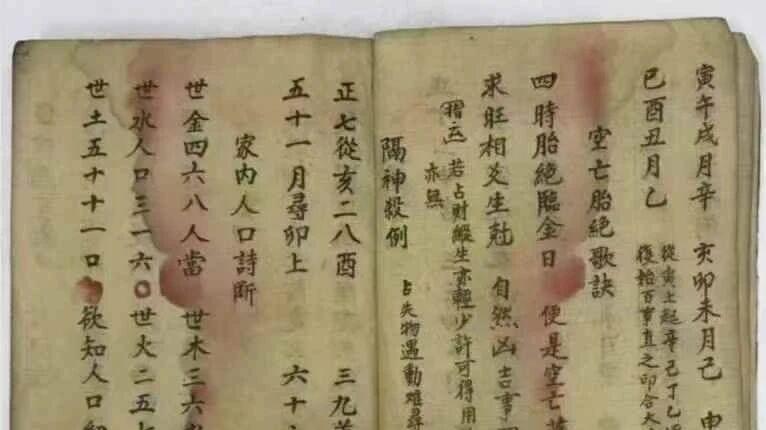 寅午戌月辛 亥卯未月己 申
巳酉丑月乙 從寅上起辛己丁乙
復始百事直之即合大
空亡胎絶歌訣
四時胎絶臨金日 便是空亡
求旺相爻生尅 自然凶吉事
指亡 若占財縱生亦輕少許可得用
亦無
隔神殺例 占失物遇動難尋
正七從亥二八酉 三九
五十一月尋卯上 六十
家内人口詩断
世金四六八人當 世木三六
世水人口三一六〇世火二五七
世土五十十一口 欲知人口